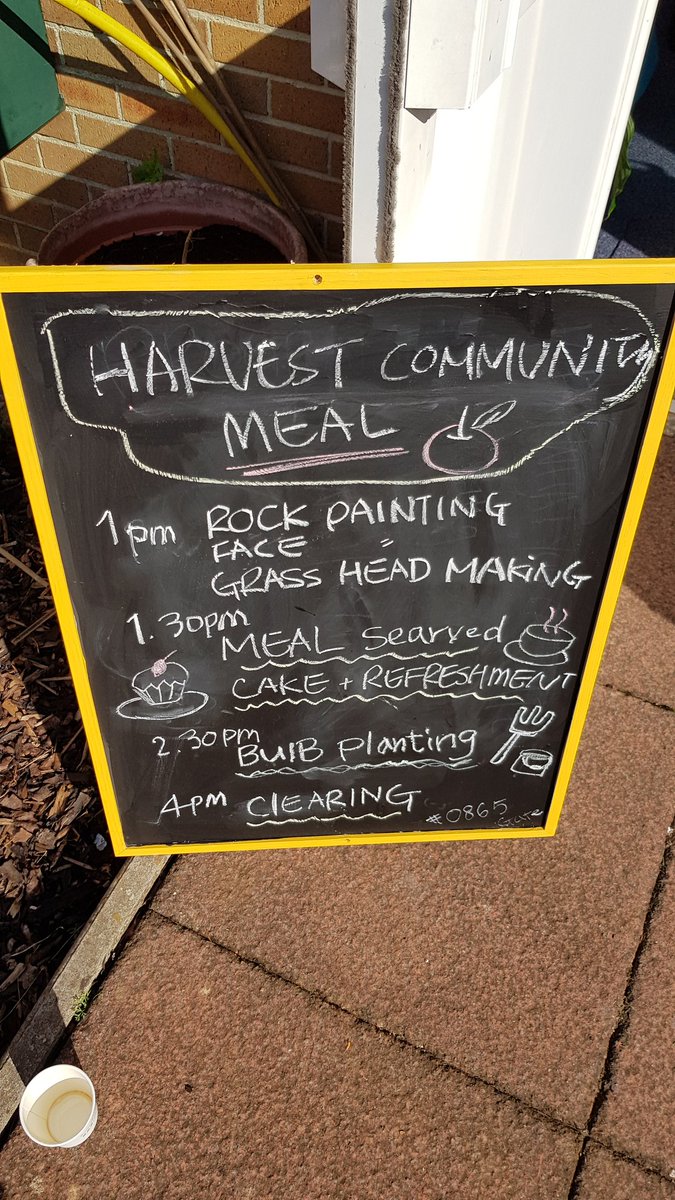 HARVEST COMMUNITY
MEAL
1pm ROCK PAINTING
FACE "
GRASS HEAD MAKING
1.30pm
MEAL Searved
CAKE + REFRESHMENT
2.30pm
BUlB Planting
4PM ClEARING
#0865